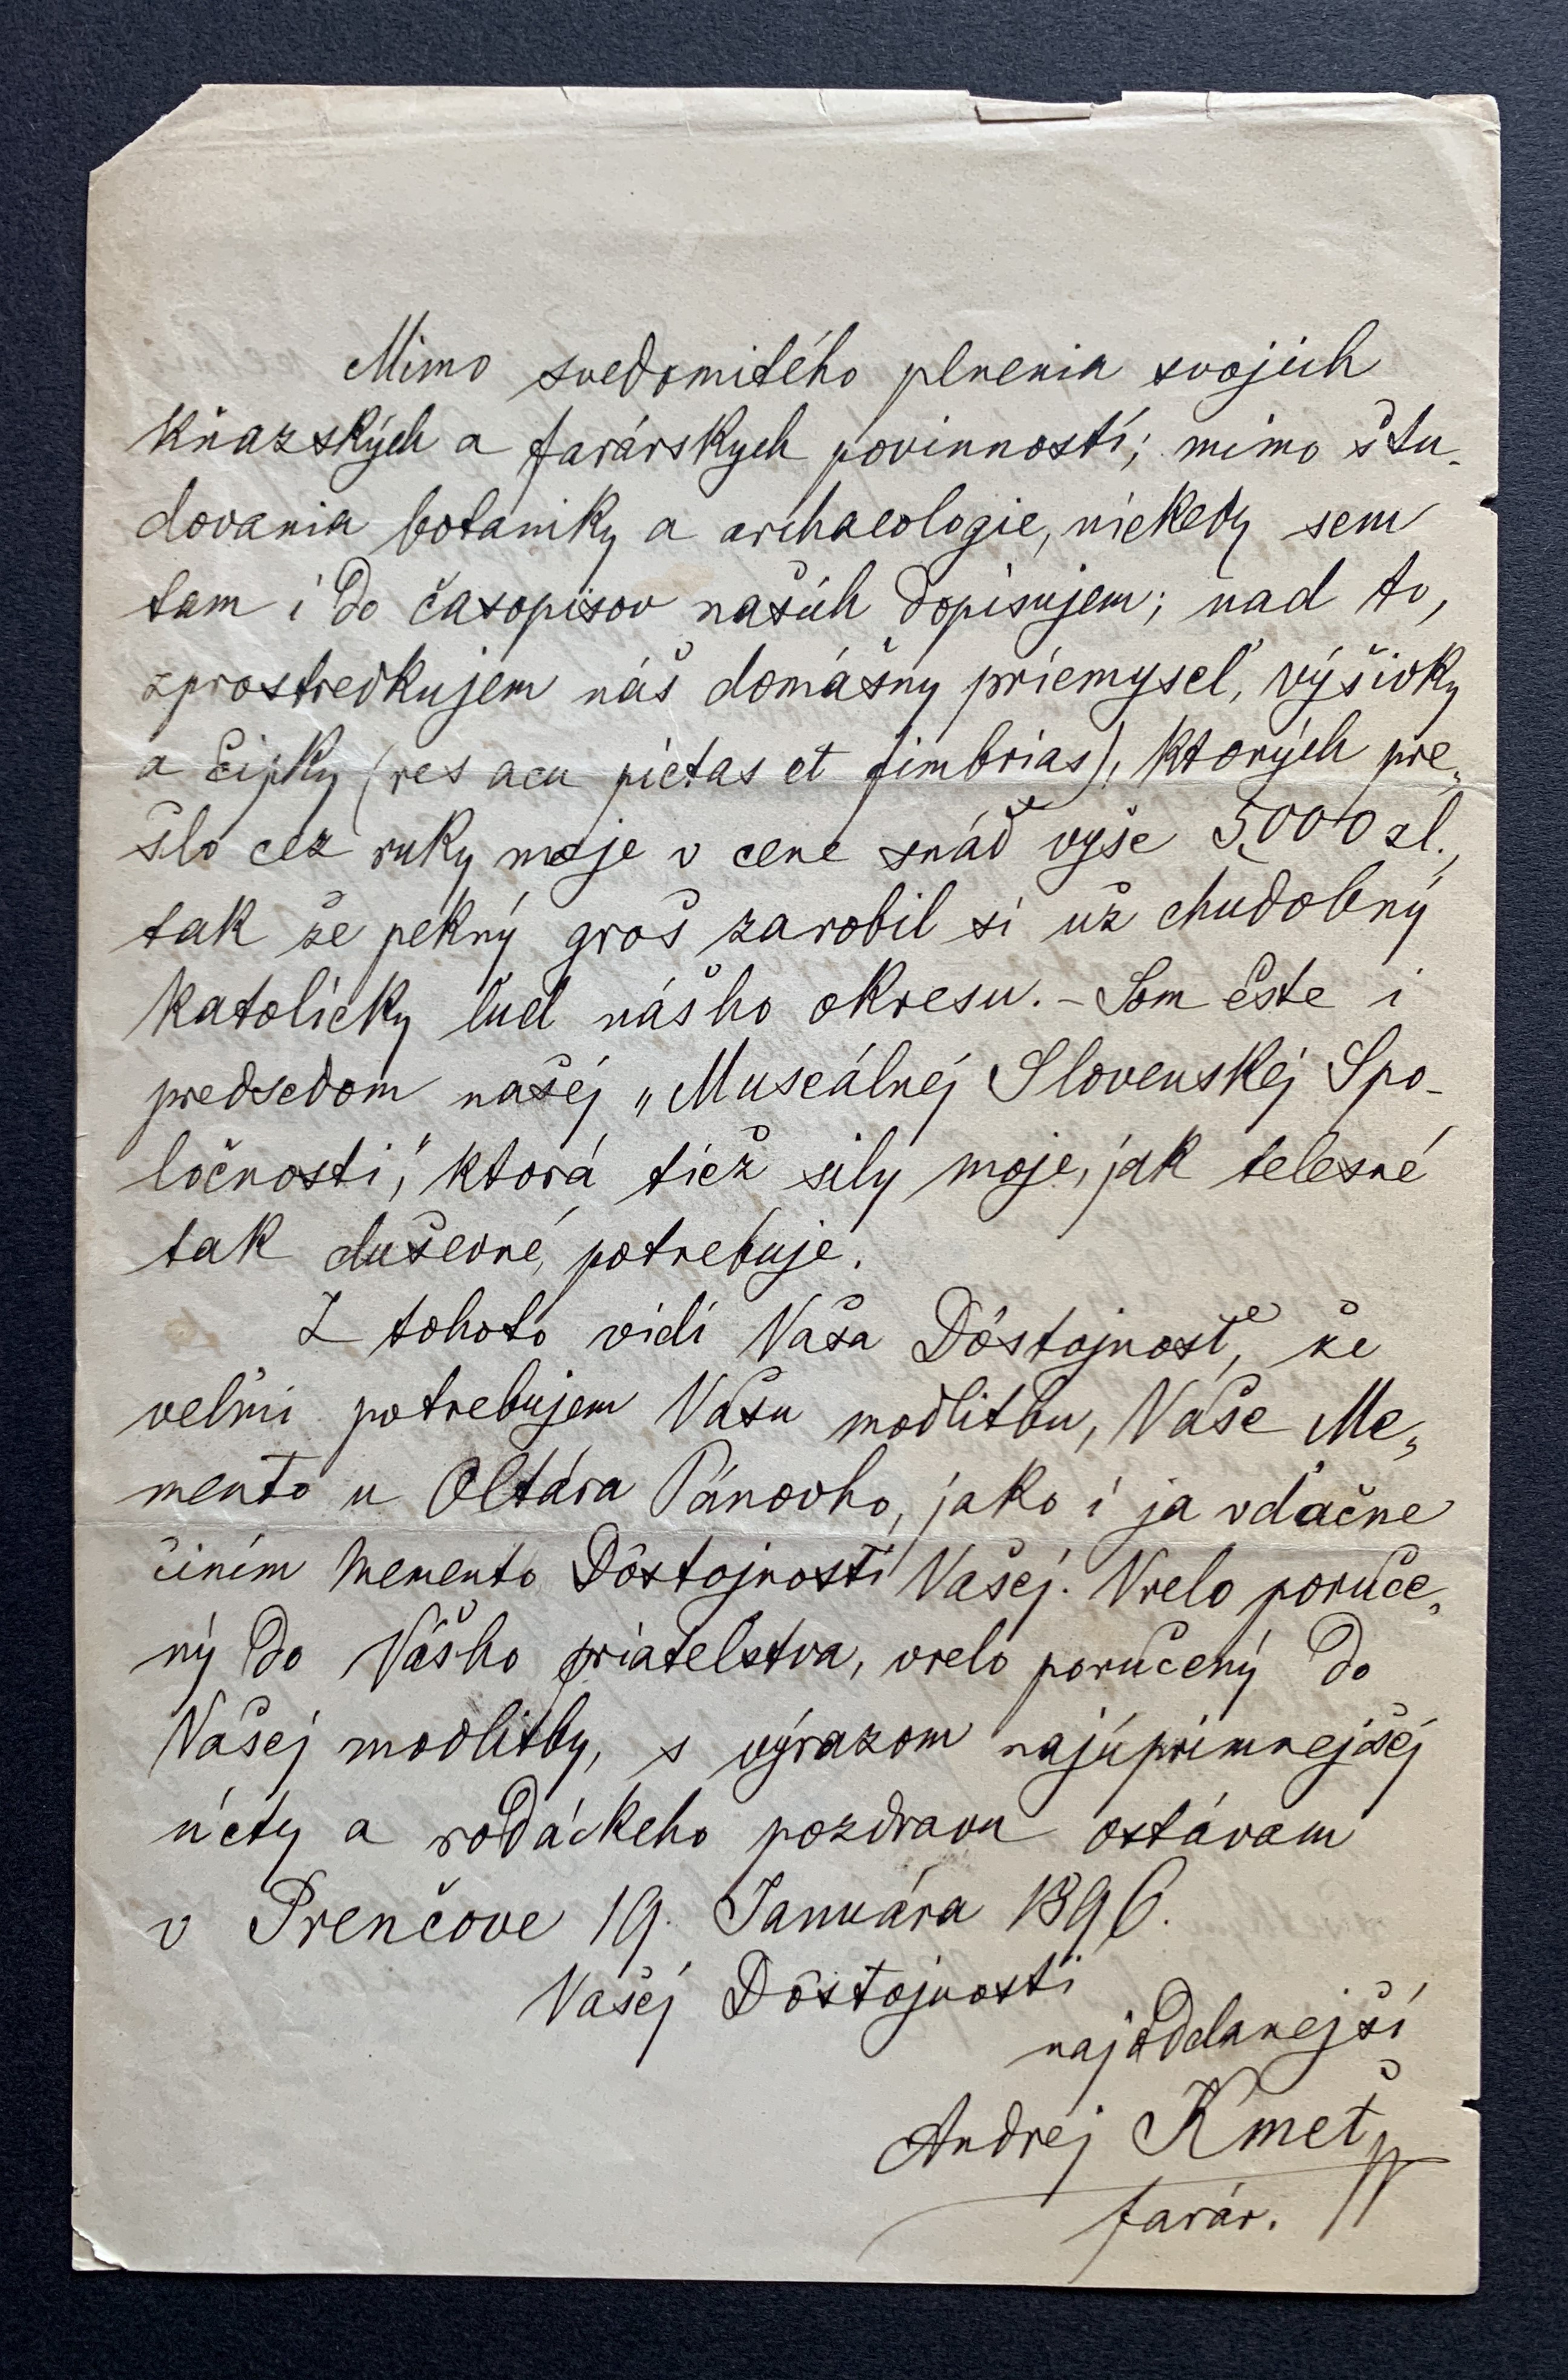 Mimo svedomitého plnenia svojich
kňazských a farárskych povinností; mimo štu-
dovania botaniky a archaeologie, niekedy sem
tam i do časopisov našich dopisujem; nad to,
zprostredkujem náš domášny priemysel, výšivky
a čipky (res acu pictas et fimbrias), ktorých pre„
šlo cez ruky moje v cene snáď vyše 5000 zl.,
tak že pekný groš zarobil si už chudobný
katolícky ľud nášho okresu. – Som ešte i
predsedom našej „Museálnej Slovenskej Spo-
ločnosti,“ ktorá tiež sily moje, jak telesné
tak duševné, potrebuje.
Z tohoto vidí Vaša Dôstojnosť, že
veľmi potrebujem Vašu modlitbu, Vaše Me„
mento u Oltára Pánovho, jako i ja vďačne
činím Memento Dôstojnosti Vašej. Vrelo poruče„
ný do Vášho priatelstva, vrelo poručený do
Vašej modlitby, s výrazom najúprimnejšej
úcty a rodáckeho pozdravu ostávam
v Prenčove 19. Januára 1896.
Vašej Dôstojnosti
najoddanejší
Andrej Kmeť
farár.